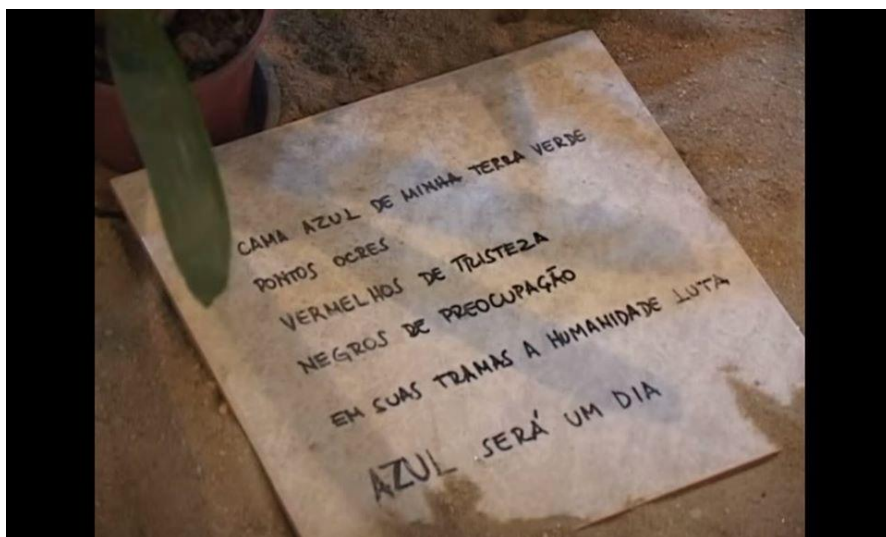 CAMA AZUL DE MINHA TERRA VERDE
PONTOS OCRES
VERMELHOS DE TRISTEZA
NEGROS DE PREOCUPAÇÃO
EM SUAS TRAMAS A HUMANIDADE LUTA
AZUL SERÁ UM DIA